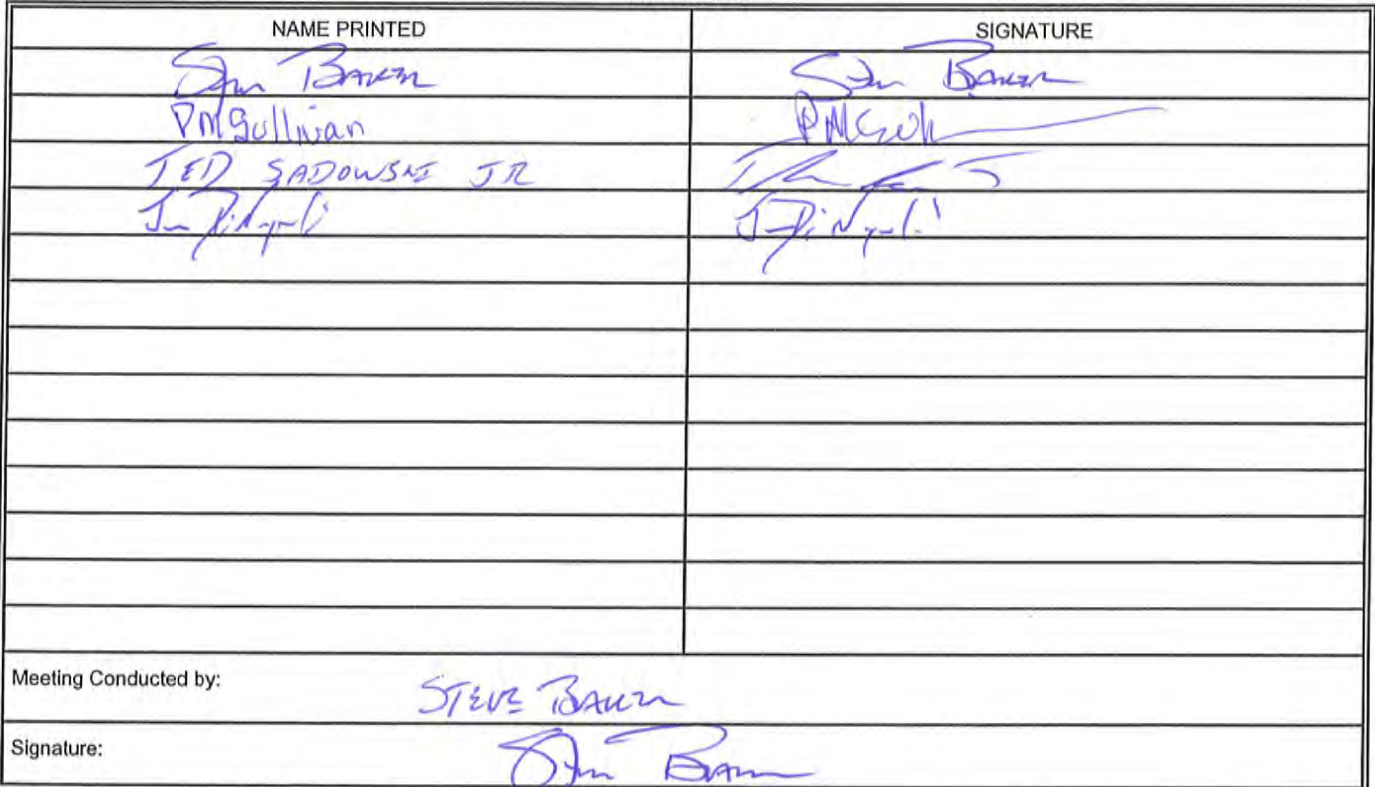 NAME PRINTED SIGNATURE
Steve Baker Steve Baker
PM Sullivan
TED SADOWSKI JR
Meeting Conducted by: STEVE BAKER
Signature: Steve Baker